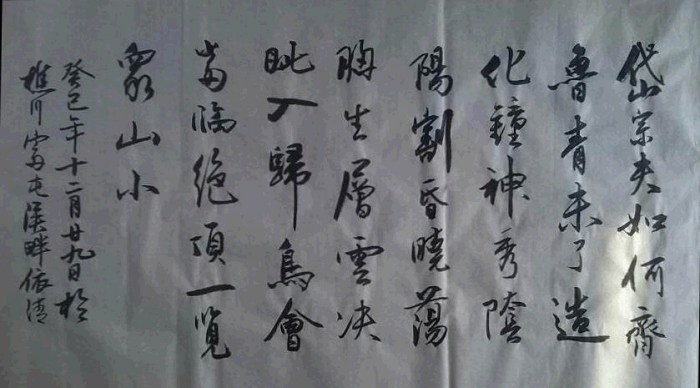 岱宗夫如何齊
魯青未了造
化鐘神秀陰
陽割昏曉蕩
胸生層雲决
眦入歸鳥會
當臨絕頂一覽
眾山小
癸巳年十二月廿九日於
樵川富屯溪畔依清